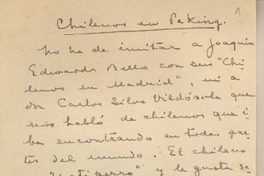 1
Chilenos en Peking.
No he de imitar a Joaquín
Edwards Bello con sus "Chi
lenos en Madrid", ni a
don Carlos Silva Vildósola que
nos habló de chilenos que i
ba encontrando en todas par
tes del mundo. El chileno
"patiperro" y le gusta